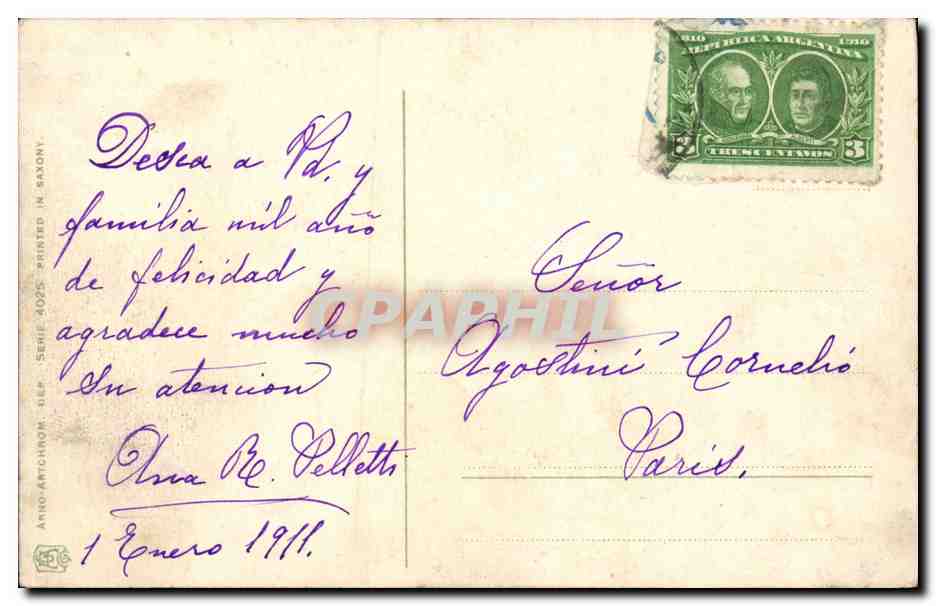 Desea a Vd. y
familia mil año
de felicidad y
agradece mucho
su atencion
Ana R. Pelletti
1 Enero 1911.
Señor
Agostini Cornelió
Paris.
1810 1910
REPUBLICA ARGENTINA
3 TRES CENTAVOS 3
ARNO-ARTCHROM DEP. SERIE 4025 PRINTED IN SAXONY.
CPAPHIL